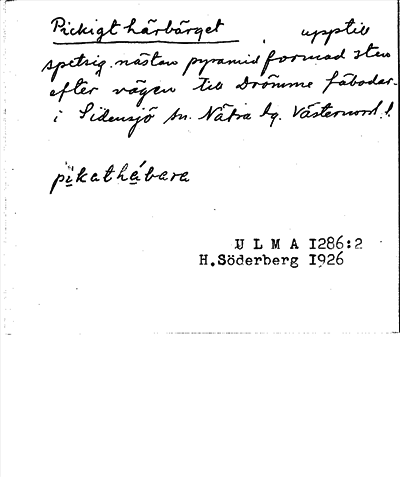 Pickigt härbärget, upptill
spetsig nästan pyramidformad sten
efter vägen till Drömme fäbodar
i Sidensjö sn. Nätra tg. Västernorrl. l.
pikathábara
U L M A I286:2
H.Söderberg I926